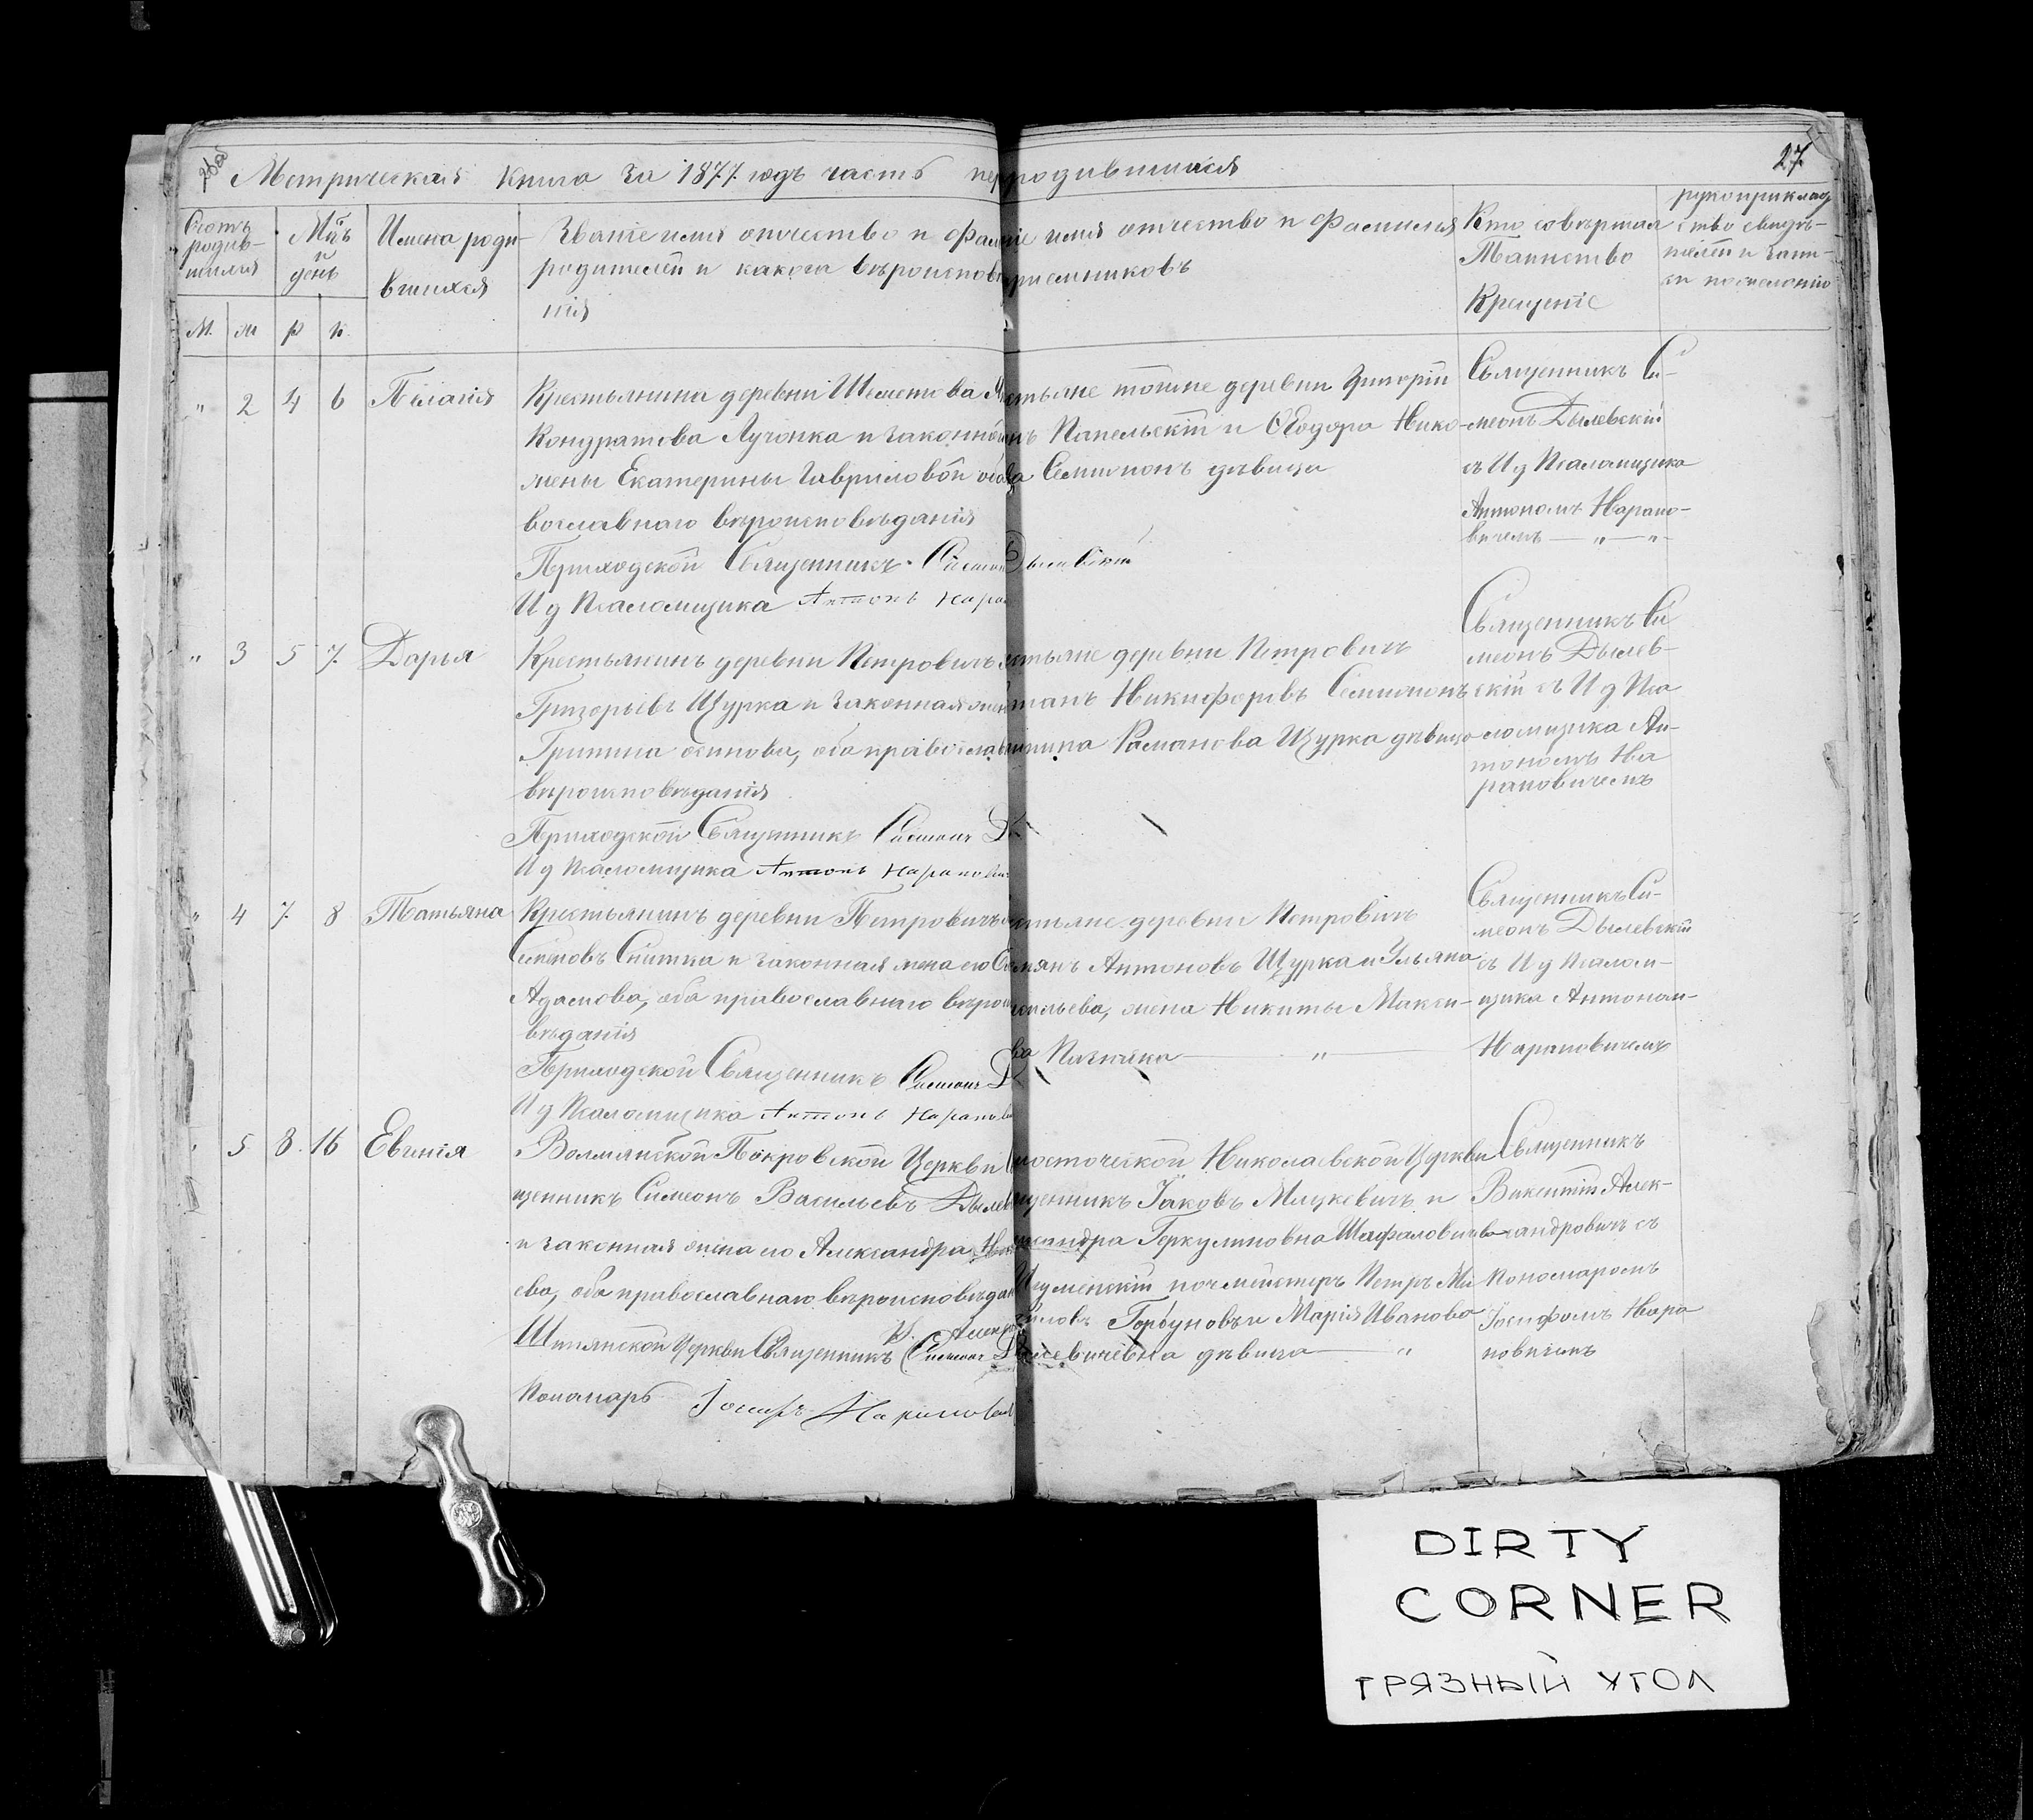 27
Метрическая книга за 1877 годъ часть пер родившихся
Счетъ родив-шихся
Мцъ и день
Имена роди-вшихся
Званіе имя отчество и фам
родителей и какого вероиспов
нія
іе имя отчество и Фамилія
пріемниковъ
Кто совершал
Таинство
Крещеніе
рукоприклад
ство свидѣ-
телей и запи-
си по желанію
М. м р к
" 2 4 6 Пелагія
Крестьянина деревни
Кондратова Лучонка и законной
жены Екатерины Гавриловой оба
вославнаго вѣроисповѣданія
Приходской Священникъ Симеон Дылевскій
И д Псаломщика Антонъ Нара
стьяне тойже деревни Григорій
и Ѳеодора Нико-
Семионъ дѣвица
Священникъ Си-
меонъ Дылевскій
съ И д Псаломщика
Антономъ Нарано-
вичемъ — „ — „ -
" 3 5 7. Дарья
Крестьянинъ деревни Петровичъ
Григорьевъ Щурка и законная жен
осипова, оба православ
вѣроисповѣданія
Приходской Священникъ Симеонъ Ды
И д Псаломщика Антонъ Наранови
стьяне деревни Петровичъ
Никифоровъ Семионъ
Романова Щурка дѣвица
Священникъ Си
меонъ Дылев-
скій съ И д Пса
ломщика Ан-
тономъ На
рановичемъ
" 4 7. 8 Татьяна
Крестьянинъ деревни Петровичъ
Снитка и законная жена его
Адамова, оба православнаго вѣрои
вѣданія
Приходской Священникъ Симеонъ Д
И д Псаломщика Антонъ Наранов
стьяне деревни Петровичъ
Антоновъ Щурка и Ульяна
жена Никиты Макси-
ва — „ —
Священникъ Си-
меонъ Дылевскій
съ И д Псалом-
щика Антоном-
Нарановичемъ
5 8. 16 Евгенія
Волмянской Покровской Церкви
щенникъ Симеонъ Васильевъ Дылев
и законная жена его Александра
ева, оба православнаго вѣроисповѣдан
Церкви Священникъ Симеонъ Д
Пономарь Іосифъ Нарановичъ
Николаевской Церкви
щенникъ Іаковъ Мацкевичъ и
ксандра Геркулиновна
Игуменскій почмейстеръ Петръ Ми
йловъ Горбуновъ и Марія Иванова
дѣвица — „
Священникъ
Викентій Алек-
сандровичъ съ
Пономаромъ
Іосифомъ Нара
новичемъ
DIRTY
CORNER
ГРЯЗНЫЙ УГОЛ